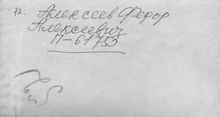 72. Алексеев Федор
Алексеевич
П-61753